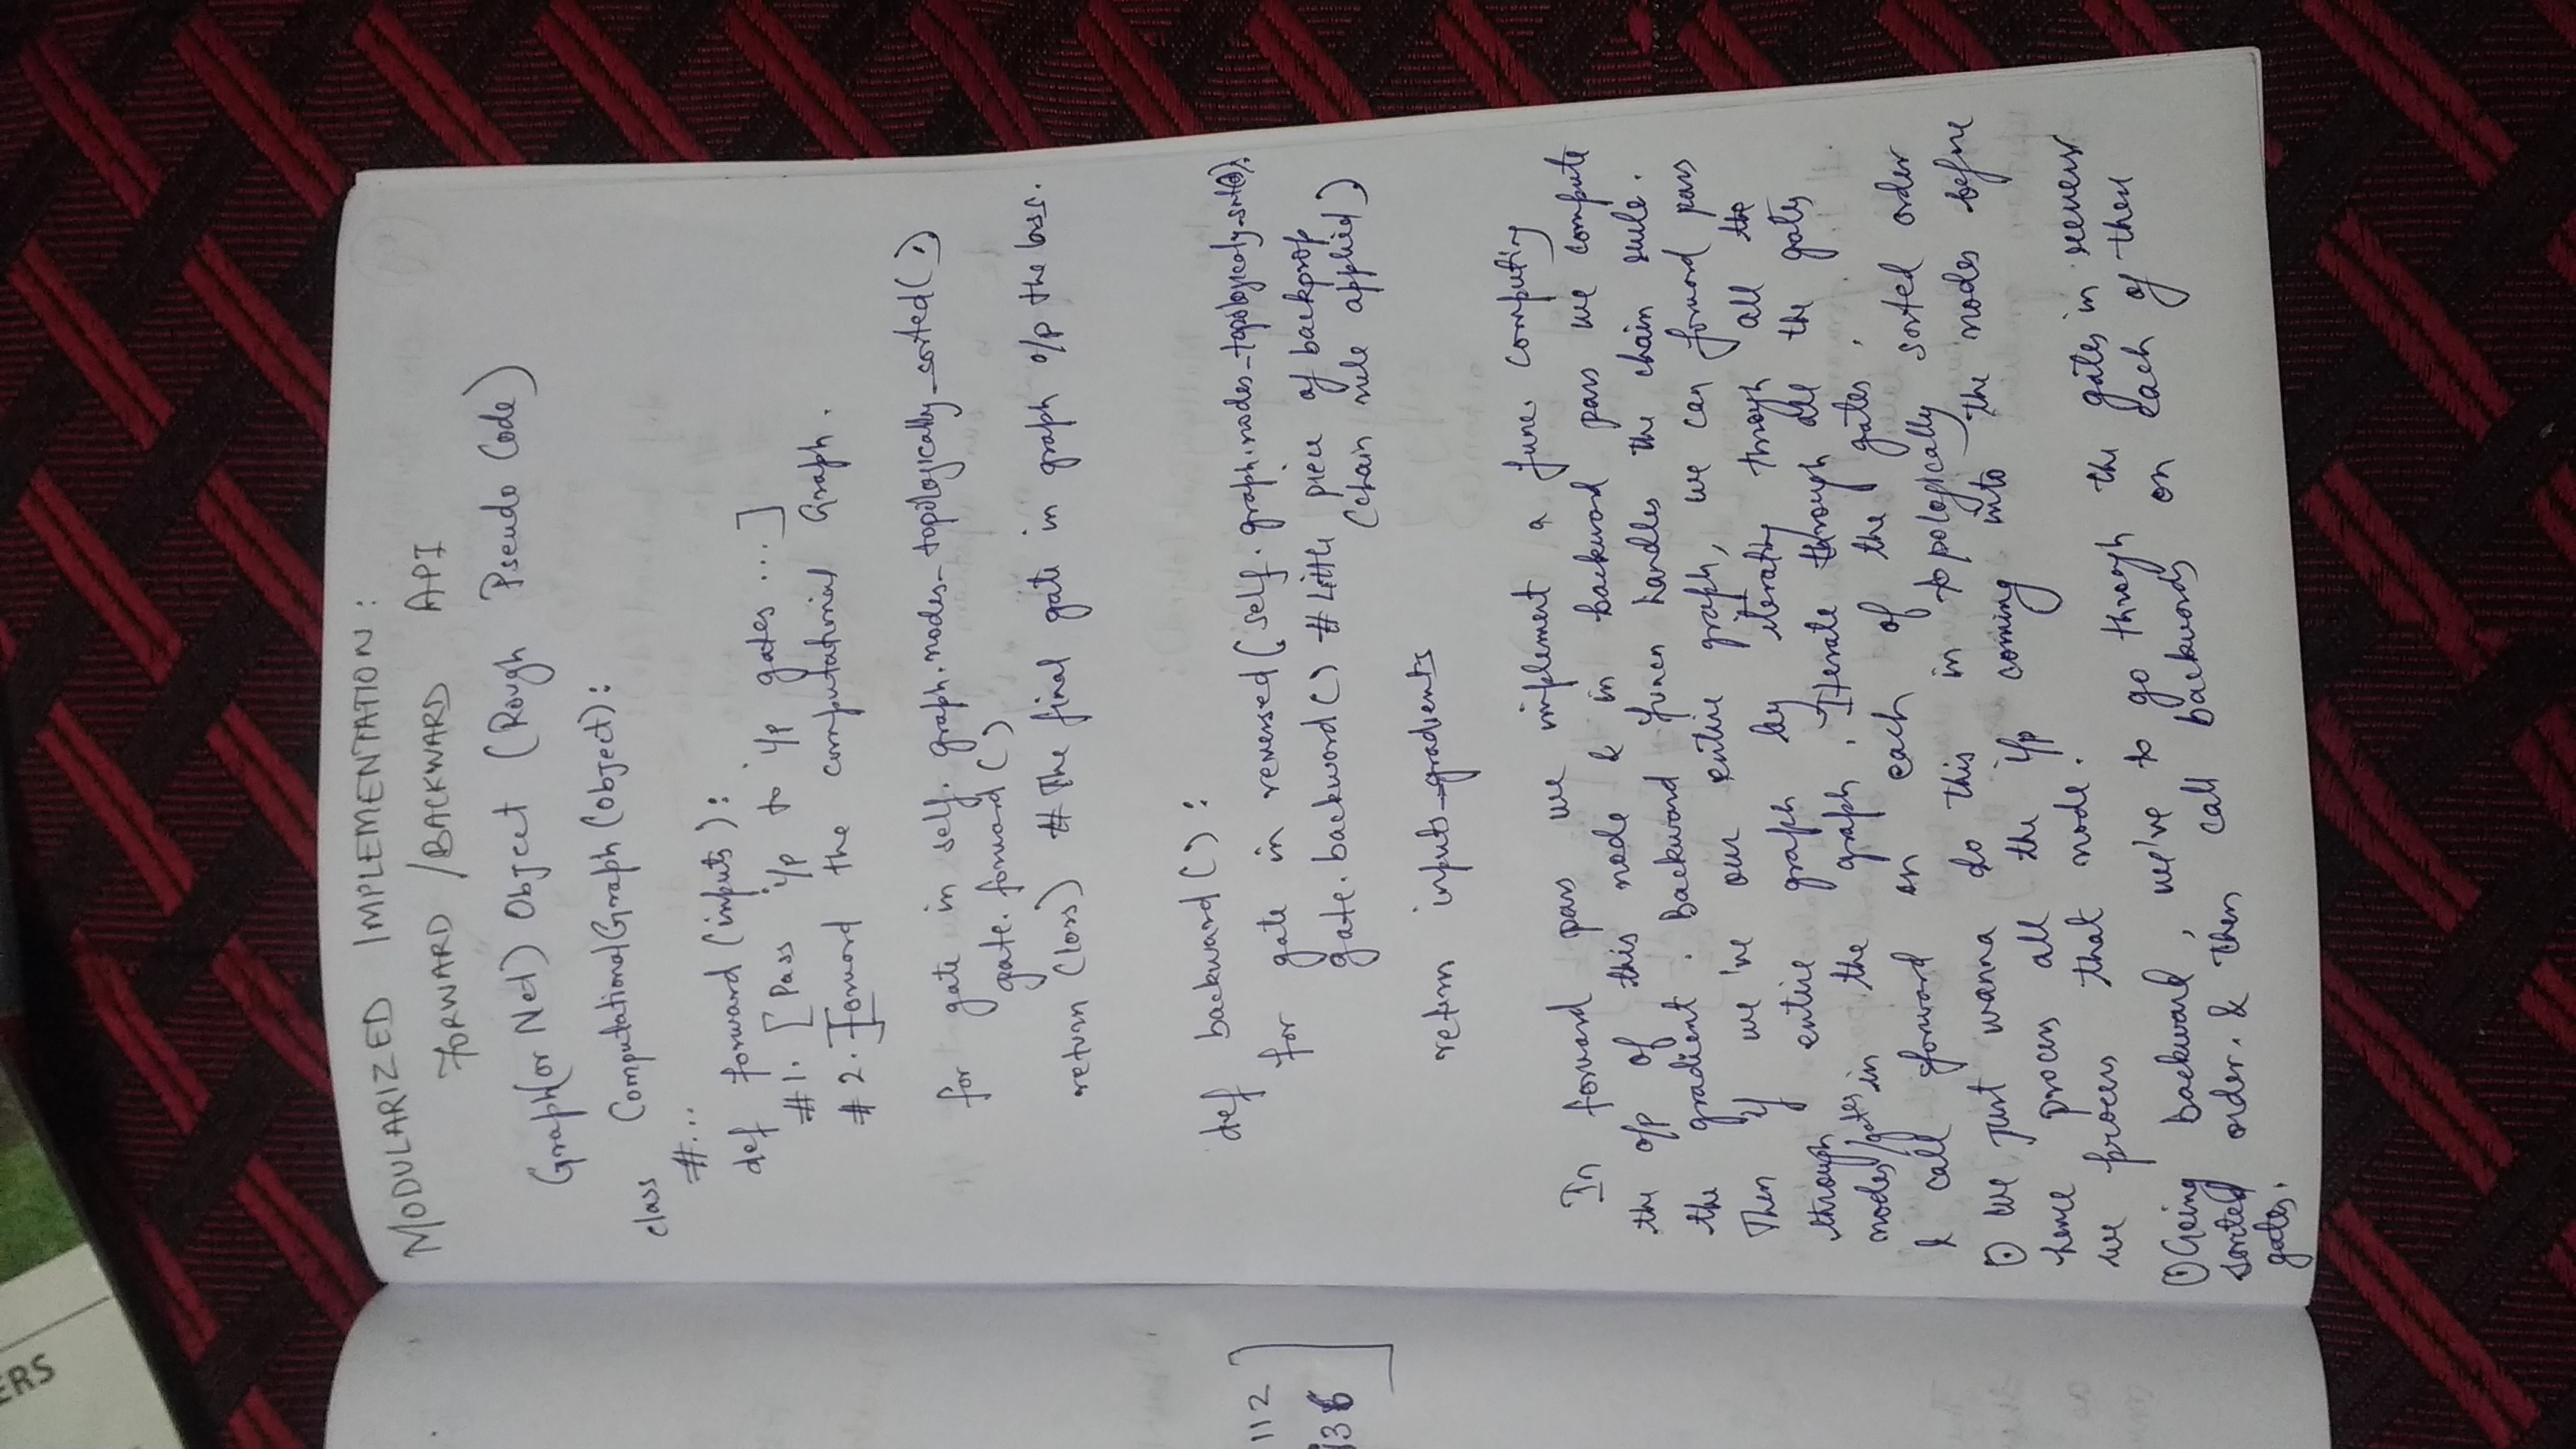 ERS
MODULARIZED IMPLEMENTATION:
FORWARD /BACKWARD API
Graph(or Net) Object (Rough Pseudo Code)
class ComputationalGraph (object):
#...
def forward (inputs):
#1. [Pass i/p to i/p gates ...]
#2. Forward the computational Graph.
for gate in self. graph.nodes_topologically_sorted():
gate. forward ()
return (loss) # The final gate in graph o/p the loss.
def backward ():
for gate in reversed (self. graph.nodes_topologicaly_
gate. backword () # Little piece of backprop
(chain rule applied)
return inputs_gradients
In forward pass we implement a func. computing
the o/p of this node & in backword pass we compute
the gradient. Backward funcn handles the chain rule.
Then if we've our entire graph, we can forword pass
through entire graph by iterating through all the
nodes/gates in the graph. Iterate through all the gates
& call forward on each of the gates.
⊙ We just wanna do this in topologically sorted order
hence process all the i/p coming into the nodes before
we process that node.
⊙ Going backward, we've to go through the gates in reverse
sorted order. & then call backwords on each of these
gates.
112
136